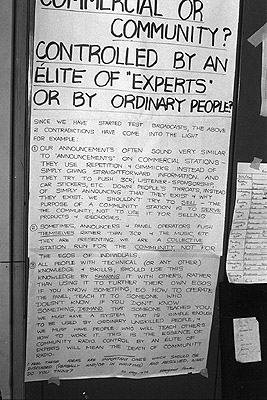 COMMERCIAL OR
COMMUNITY?
CONTROLLED BY AN
ÉLITE OF "EXPERTS"
OR BY ORDINARY PEOPLE?
SINCE WE HAVE STARTED TEST BROADCASTS, THE ABOVE
2 CONTRADICTIONS HAVE COME INTO THE LIGHT
FOR EXAMPLE:
① OUR ANNOUNCEMENTS OFTEN SOUND VERY SIMILAR
TO "ANNOUNCEMENTS" ON COMMERCIAL STATIONS -
THEY USE REPETITION & GIMMICKS INSTEAD OF
SIMPLY GIVING STRAIGHTFORWARD INFORMATION. AND
THEY TRY TO PUSH 3CR, LISTENER-SPONSORSHIP
CAR STICKERS, ETC. DOWN PEOPLE'S THROATS, INSTEAD
OF SIMPLY ANNOUNCING THAT THEY EXIST & WHY
THEY EXIST. WE SHOULDN'T TRY TO SELL - THE
PURPOSE OF A COMMUNITY STATION IS TO SERVE
THE COMMUNITY, NOT TO USE IT FOR SELLING
PRODUCTS & IDEOLOGIES.
② SOMETIMES, ANNOUNCERS & PANEL OPERATORS PUSH
THEMSELVES RATHER THAN 3CR & THE MUSIC ETC
THEY ARE PRESENTING. WE ARE A COLLECTIVE
STATION RUN FOR THE COMMUNITY NOT FOR
THE EGOS OF INDIVIDUALS.
③ ALL PEOPLE WITH TECHNICAL (OR ANY OTHER)
KNOWLEDGE & SKILLS, SHOULD USE THIS
KNOWLEDGE BY SHARING IT WITH OTHERS, RATHER
THAN USING IT TO FURTHER THEIR OWN EGOS.
IF YOU KNOW SOMETHING, EG. HOW TO OPERATE
THE PANEL, TEACH IT TO SOMEONE WHO
DOESN'T KNOW. IF YOU DON'T KNOW
SOMETHING, DEMAND THAT SOMEONE TEACHES YOU.
WE MUST HAVE A SYSTEM THAT IS SIMPLE ENOUGH
TO BE USED BY ORDINARY UNSKILLED PEOPLE, &
WE MUST HAVE PEOPLE WHO WILL TEACH OTHERS
HOW TO WORK IT. THIS IS THE ESSENCE OF
COMMUNITY RADIO. CONTROL BY AN ÉLITE OF
EXPERTS WILL MEAN THE DEATH OF COMMUNITY
RADIO.
I FEEL THESE AREAS ARE IMPORTANT ONES WHICH SHOULD BE
DISCUSSED (VERBALLY AND/OR IN WRITING) AND RESOLVED. WHAT
DO YOU THINK?